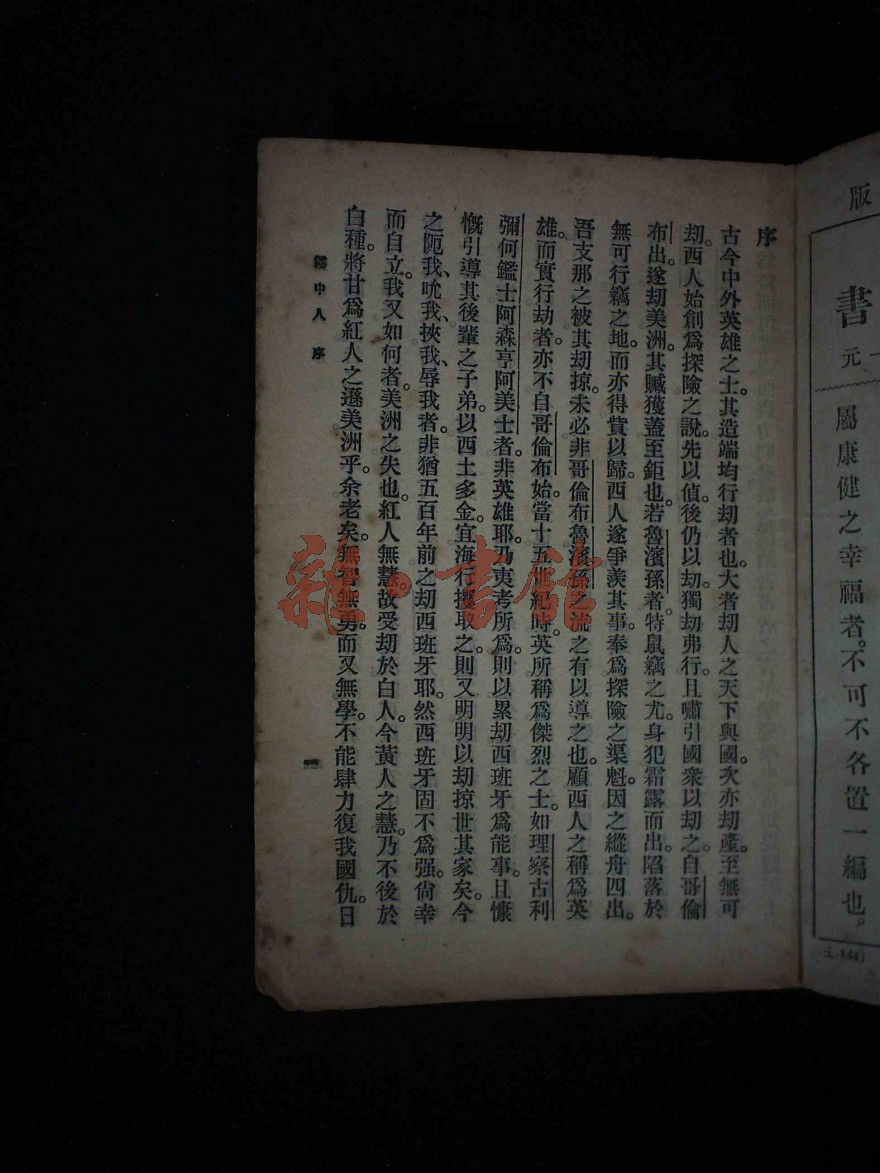 版
書
元一
屬康健之幸福者。不可不各置一編也。
序
古今中外英雄之士。其造端均行劫者也。大者劫人之天下與國。次亦劫產。至無可
劫。西人始創爲探險之說。先以偵。後仍以劫。獨劫弗行。且嘯引國衆以劫之。自哥倫
布出。遂劫美洲。其贓獲蓋至鉅也。若魯濱孫者。特鼠竊之尤。身犯霜露而出。陷落於
無可行竊之地。而亦得貲以歸。西人遂爭羨其事。奉爲探險之渠魁。因之縱舟四出。
吾支那之被其劫掠。未必非哥倫布魯濱孫之流之有以導之也。顧西人之稱爲英
雄。而實行劫者。亦不自哥倫布始。當十五世紀時。英所稱爲傑烈之士。如理察古利
彌何鑑士阿森亨阿美士者。非英雄耶。乃夷考所爲。則以累劫西班牙爲能事。且慷
慨引導其後輩之子弟。以西土多金。宜海行攫取之。則又明明以劫掠世其家矣。今
之阨我、吮我、挾我、辱我者。非猶五百年前之劫西班牙耶。然西班牙固不爲强。尙幸
而自立。我又如何者。美洲之失也。紅人無慧。故受劫於白人。今黃人之慧。乃不後於
白種。將甘爲紅人之遜美洲乎。余老矣。無智無勇。而又無學。不能肆力復我國仇。日
霧中人 序
一
雜·書館